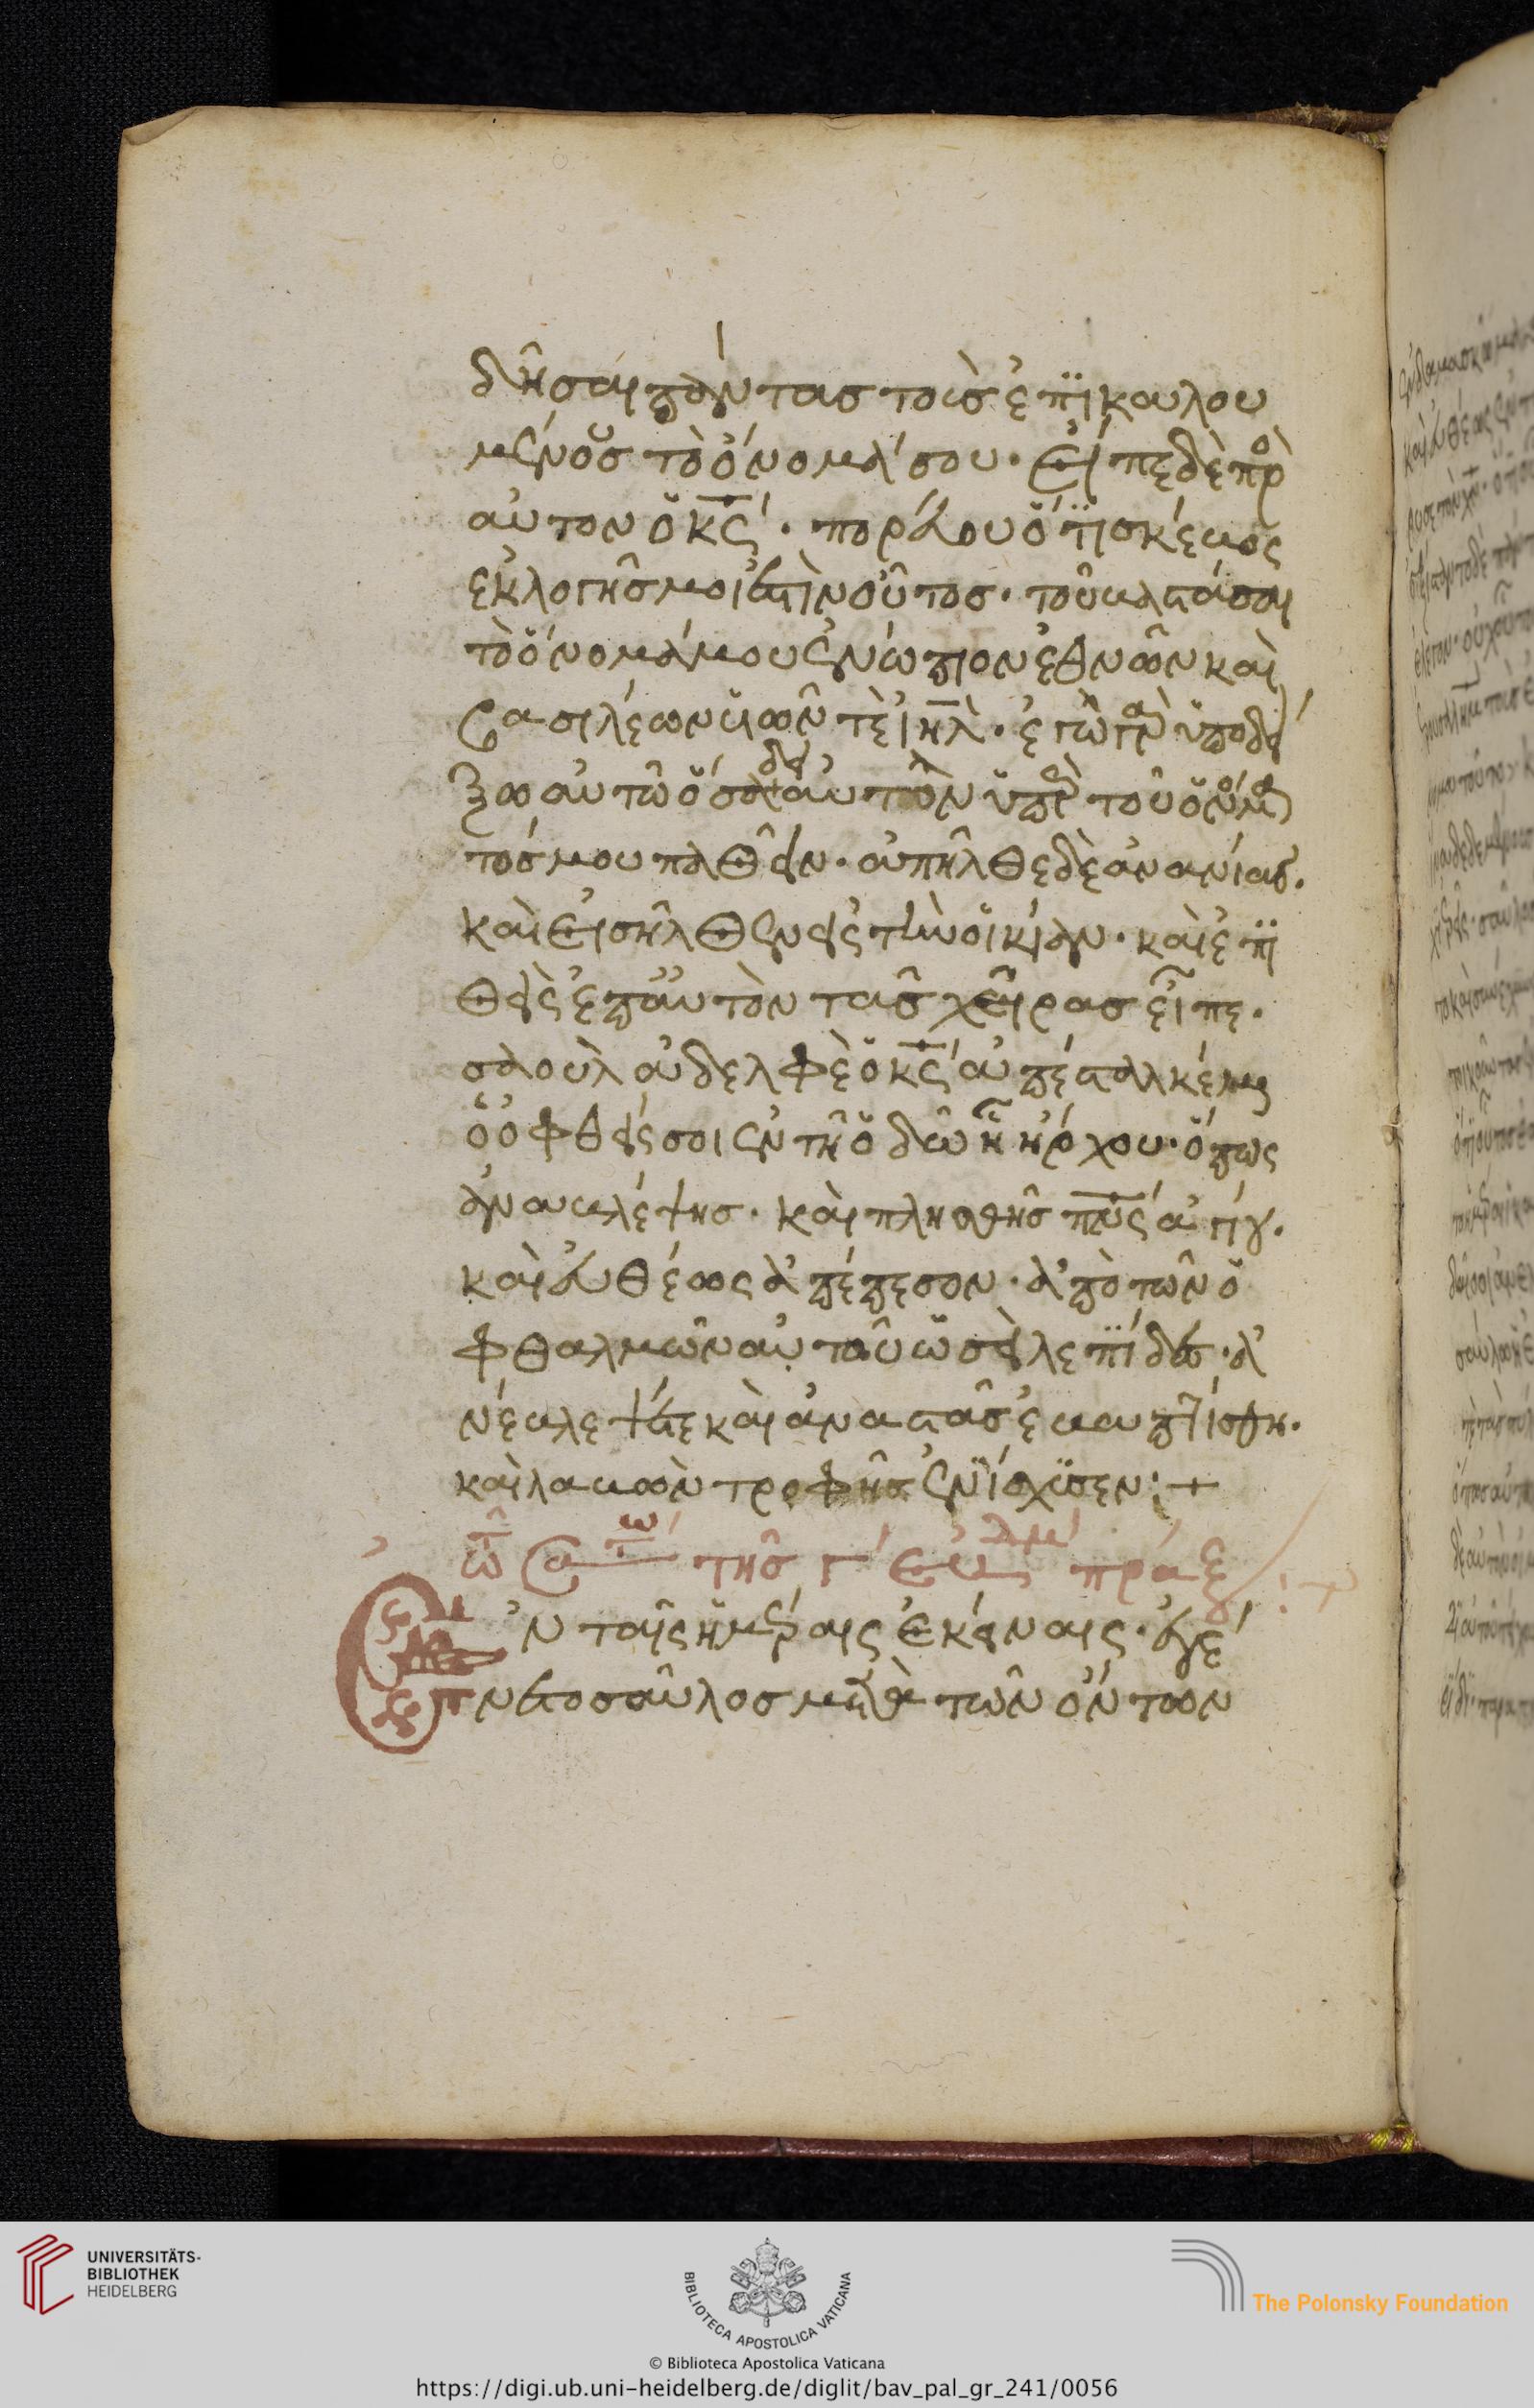 δῆσαι πάντας τοὺς ἐπϊκαλου
μένους τὸ ὄνομά σου· εἶπε δὲ πρὸ
αὐτον ὁ κς· πορεύου ὅτϊ σκέυος
ἐκλογῆς μοι ἐστὶν οὗτος· τοῦ βαστάσαι
τὸ ὄνομά μου ἐνώπιον ἐθνῶν καὶ
βασιλέων ὑιῶν τὲ ιηλ· ἐγὼ γὰρ ὑποδεί
ξω αὐτῶ ὅσα δεῖ αὐτὸν ὑπὲρ τοῦ ὀνόμα
τός μου παθεῖν· ἀπῆλθε δὲ ἀνανίας·
καὶ εἰσῆλθεν εἰς τὴν οἰκίαν· καὶ ἐπϊ
θεὶς ἐπ αὐτὸν τας χεῖρας εἶπε·
σαοὺλ ἀδελφὲ ὁ κς ἀπέσταλκέ με
ὁ ὀφθείς σοι ἐν τῆ ὁδῶ ἧ ἤρχου· ὅπως
ἀναβλέψης· καὶ πλησθῆς πνς ἁγίου·
καὶ ἐυθέως ἀπέπεσον· ἀπὸ τῶν ὀ
φθαλμῶν αὐτοῦ ὡσεὶ λεπϊδες· ἀ
νέβλεψέ τε καὶ ἀναστὰς ἐβαπτίσθη·
καὶ λαβὼν τροφῆς ἐνϊσχϋσεν:+
τῶ σα τῆς γ εβδμ πράξ:+
Ἐν ταῖς ἡμέραις ἐκείναις· ἐγέ
νετο σαῦλος μετὰ τῶν ὄντων
UNIVERSITÄTS-
BIBLIOTHEK
HEIDELBERG
BIBLIOTECA APOSTOLICA VATICANA
The Polonsky Foundation
© Biblioteca Apostolica Vaticana
https://digi.ub.uni-heidelberg.de/diglit/bav_pal_gr_241/0056